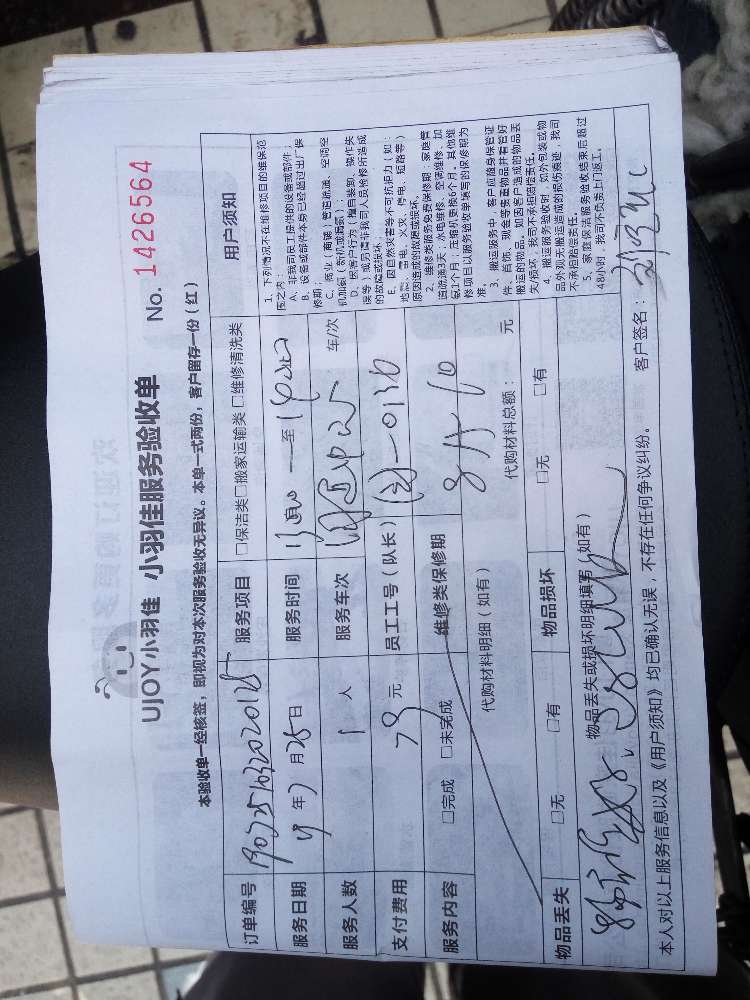 UJOY小羽佳 小羽佳服务验收单 No. 1426564
本验收单一经核签，即视为对本次服务验收无异议。本单一式两份，客户留存一份（红）
订单编号 服务项目 □保洁类□搬家运输类 □维修清洗类
服务日期 19年7月25日 服务时间 至
服务人数 1人 服务车次 车/次
支付费用 79元 员工工号（队长）
服务内容 □完成 □未完成 维修类保修期
代购材料明细（如有） 代购材料总额： 元
物品丢失 □无 □有 物品损坏 □无 □有
物品丢失或损坏明细填写（如有）
用户须知
1、下列情况不在维修项目的维保范
围之内：
A、非我司员工经件的设备或部件；
B、设备或部件本身已经超过出厂保
修期；
C、商业（商铺）管道疏通、空调空
机加氟（新机或漏氟）；
D、误操作行为（擅自装卸、操作失
误等）或另请非我司人员检修所造成
的故障或损坏；
E、因自然灾害等不可抗拒力（如：
地震、雷电、火灾、停电、短路等）
原因造成的故障或损坏。
2、维修类服务免费保修期：家庭管
道疏通3天；水电维修、空调维修、加
氟1个月；压缩机更换6个月。其他维
修项目以服务验收单填写的保修期为
准。
3、搬运服务中，客户应随身保管证
件、首饰、现金等贵重物品并看管好
搬运的物品。如因客户造成的物品丢
失/损坏，我司不承担赔偿责任。
4、搬运服务验收时，如外包装或物
品外观无搬运造成的损伤痕迹，我司
不承担赔偿责任。
5、家庭保洁服务验收结束后超过
48小时，我司不负责上门返工。
本人对以上服务信息以及《用户须知》均已确认无误，不存在任何争议纠纷。 客户签名：